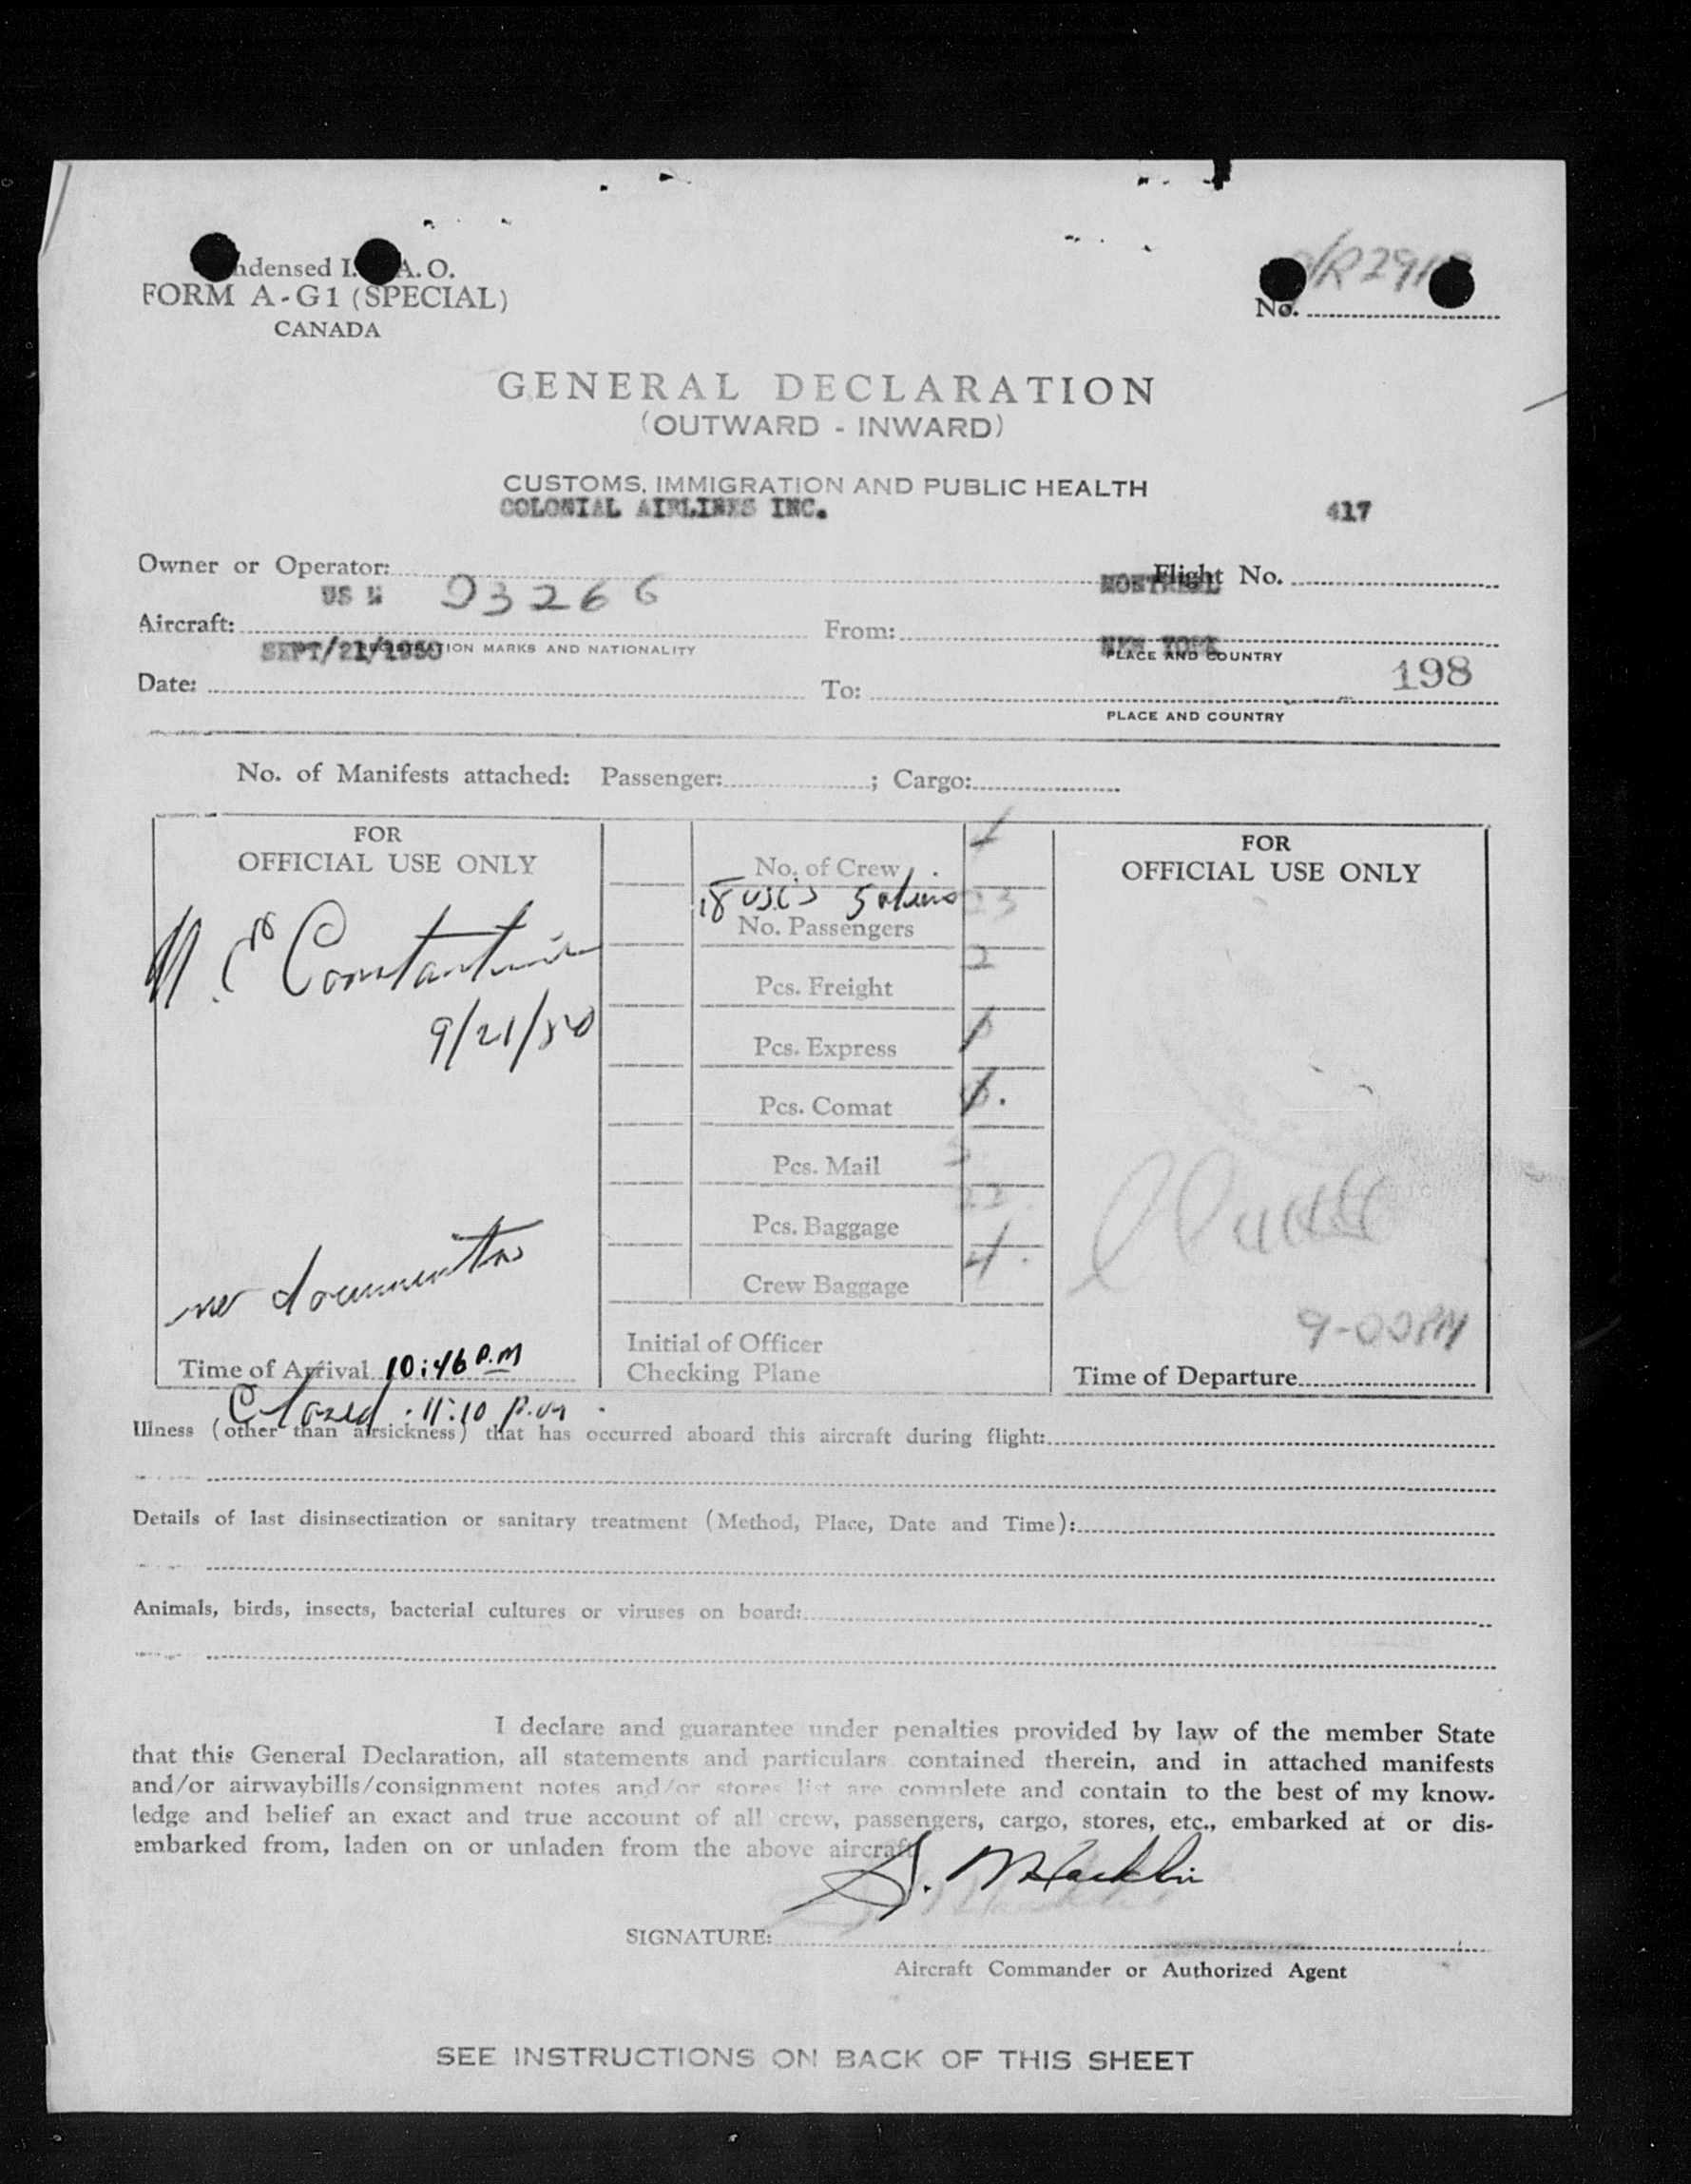 ndensed I. A. O.
FORM A-G1 (SPECIAL)
CANADA
No.
GENERAL DECLARATION
(OUTWARD - INWARD)
CUSTOMS, IMMIGRATION AND PUBLIC HEALTH
COLONIAL AIRLINES INC. 417
Owner or Operator: Flight No.
US N 93266 MONTREAL
Aircraft: From:
SEPT/21/1950 REGISTRATION MARKS AND NATIONALITY NEW YORK PLACE AND COUNTRY
Date: To: 198
PLACE AND COUNTRY
No. of Manifests attached: Passenger: ; Cargo:
FOR
OFFICIAL USE ONLY
N. C. Constantine
9/21/50
no documents
Time of Arrival 10:46 P.M
Closed . 11:10 p.m.
No. of Crew
18 USCS 5 aliens 23
No. Passengers
2
Pcs. Freight
Pcs. Express
Pcs. Comat
Pcs. Mail
Pcs. Baggage
4.
Crew Baggage
Initial of Officer
Checking Plane
FOR
OFFICIAL USE ONLY
9-00PM
Time of Departure
Illness (other than airsickness) that has occurred aboard this aircraft during flight:
Details of last disinsectization or sanitary treatment (Method, Place, Date and Time):
Animals, birds, insects, bacterial cultures or viruses on board:
I declare and guarantee under penalties provided by law of the member State
that this General Declaration, all statements and particulars contained therein, and in attached manifests
and/or airwaybills/consignment notes and/or stores list are complete and contain to the best of my know-
ledge and belief an exact and true account of all crew, passengers, cargo, stores, etc., embarked at or dis-
embarked from, laden on or unladen from the above aircraft
SIGNATURE:
Aircraft Commander or Authorized Agent
SEE INSTRUCTIONS ON BACK OF THIS SHEET